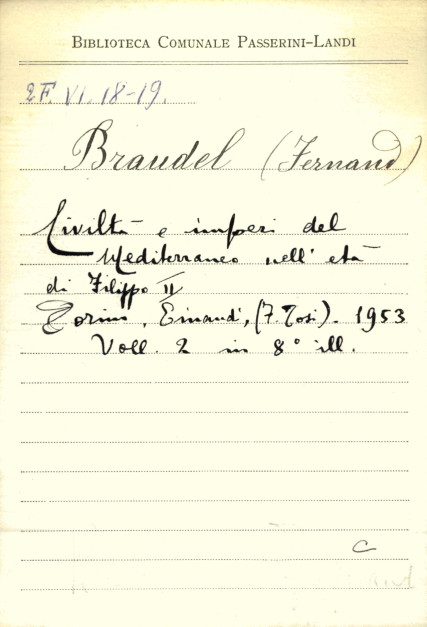 BIBLIOTECA COMUNALE PASSERINI-LANDI
2F. VI. 18-19.
Braudel (Fernand)
Civiltà e imperi del
Mediterraneo nell' età
di Filippo II
Torino, Einaudi, (F. Tosi). 1953
Voll. 2 in 8° ill.
C